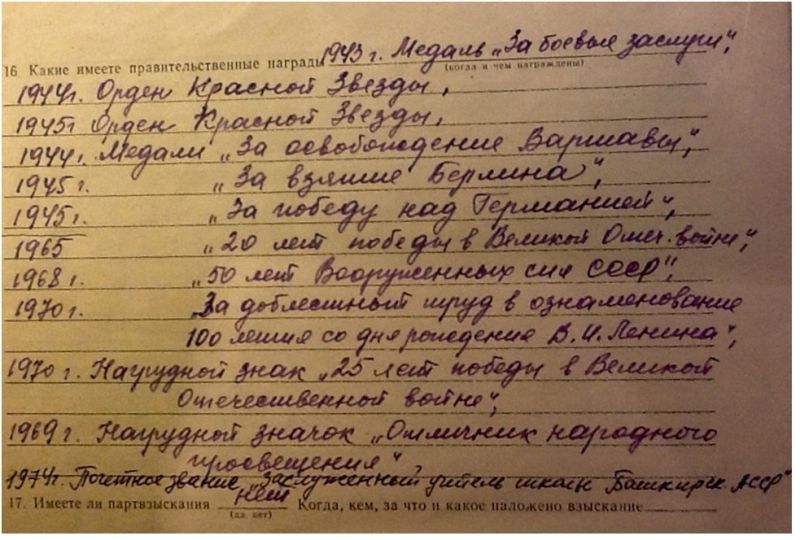 16 Какие имеете правительственные награды 1943 г. Медаль „За боевые заслуги",
(когда и чем награждены)
1944г. Орден Красной Звезды,
1945г Орден Красной Звезды,
1944г. Медали „За освобождение Варшавы",
1945 г. „За взятие Берлина",
1945г. „За победу над Германией",
1965 „20 лет победы в Великой Отеч. войне",
1968 г. „50 лет Вооруженных сил СССР",
1970 г. „За доблестный труд в ознаменование
100 летия со дня рождения В.И. Ленина",
1970 г. Нагрудной знак „25 лет победы в Великой
Отечественной войне",
1969 г. Нагрудной значок „Отличник народного
просвещения",
1974г. Почетное звание „Заслуженный учитель школы Башкирск. АССР"
17. Имеете ли партвзыскания нет Когда, кем, за что и какое наложено взыскание
(да, нет)